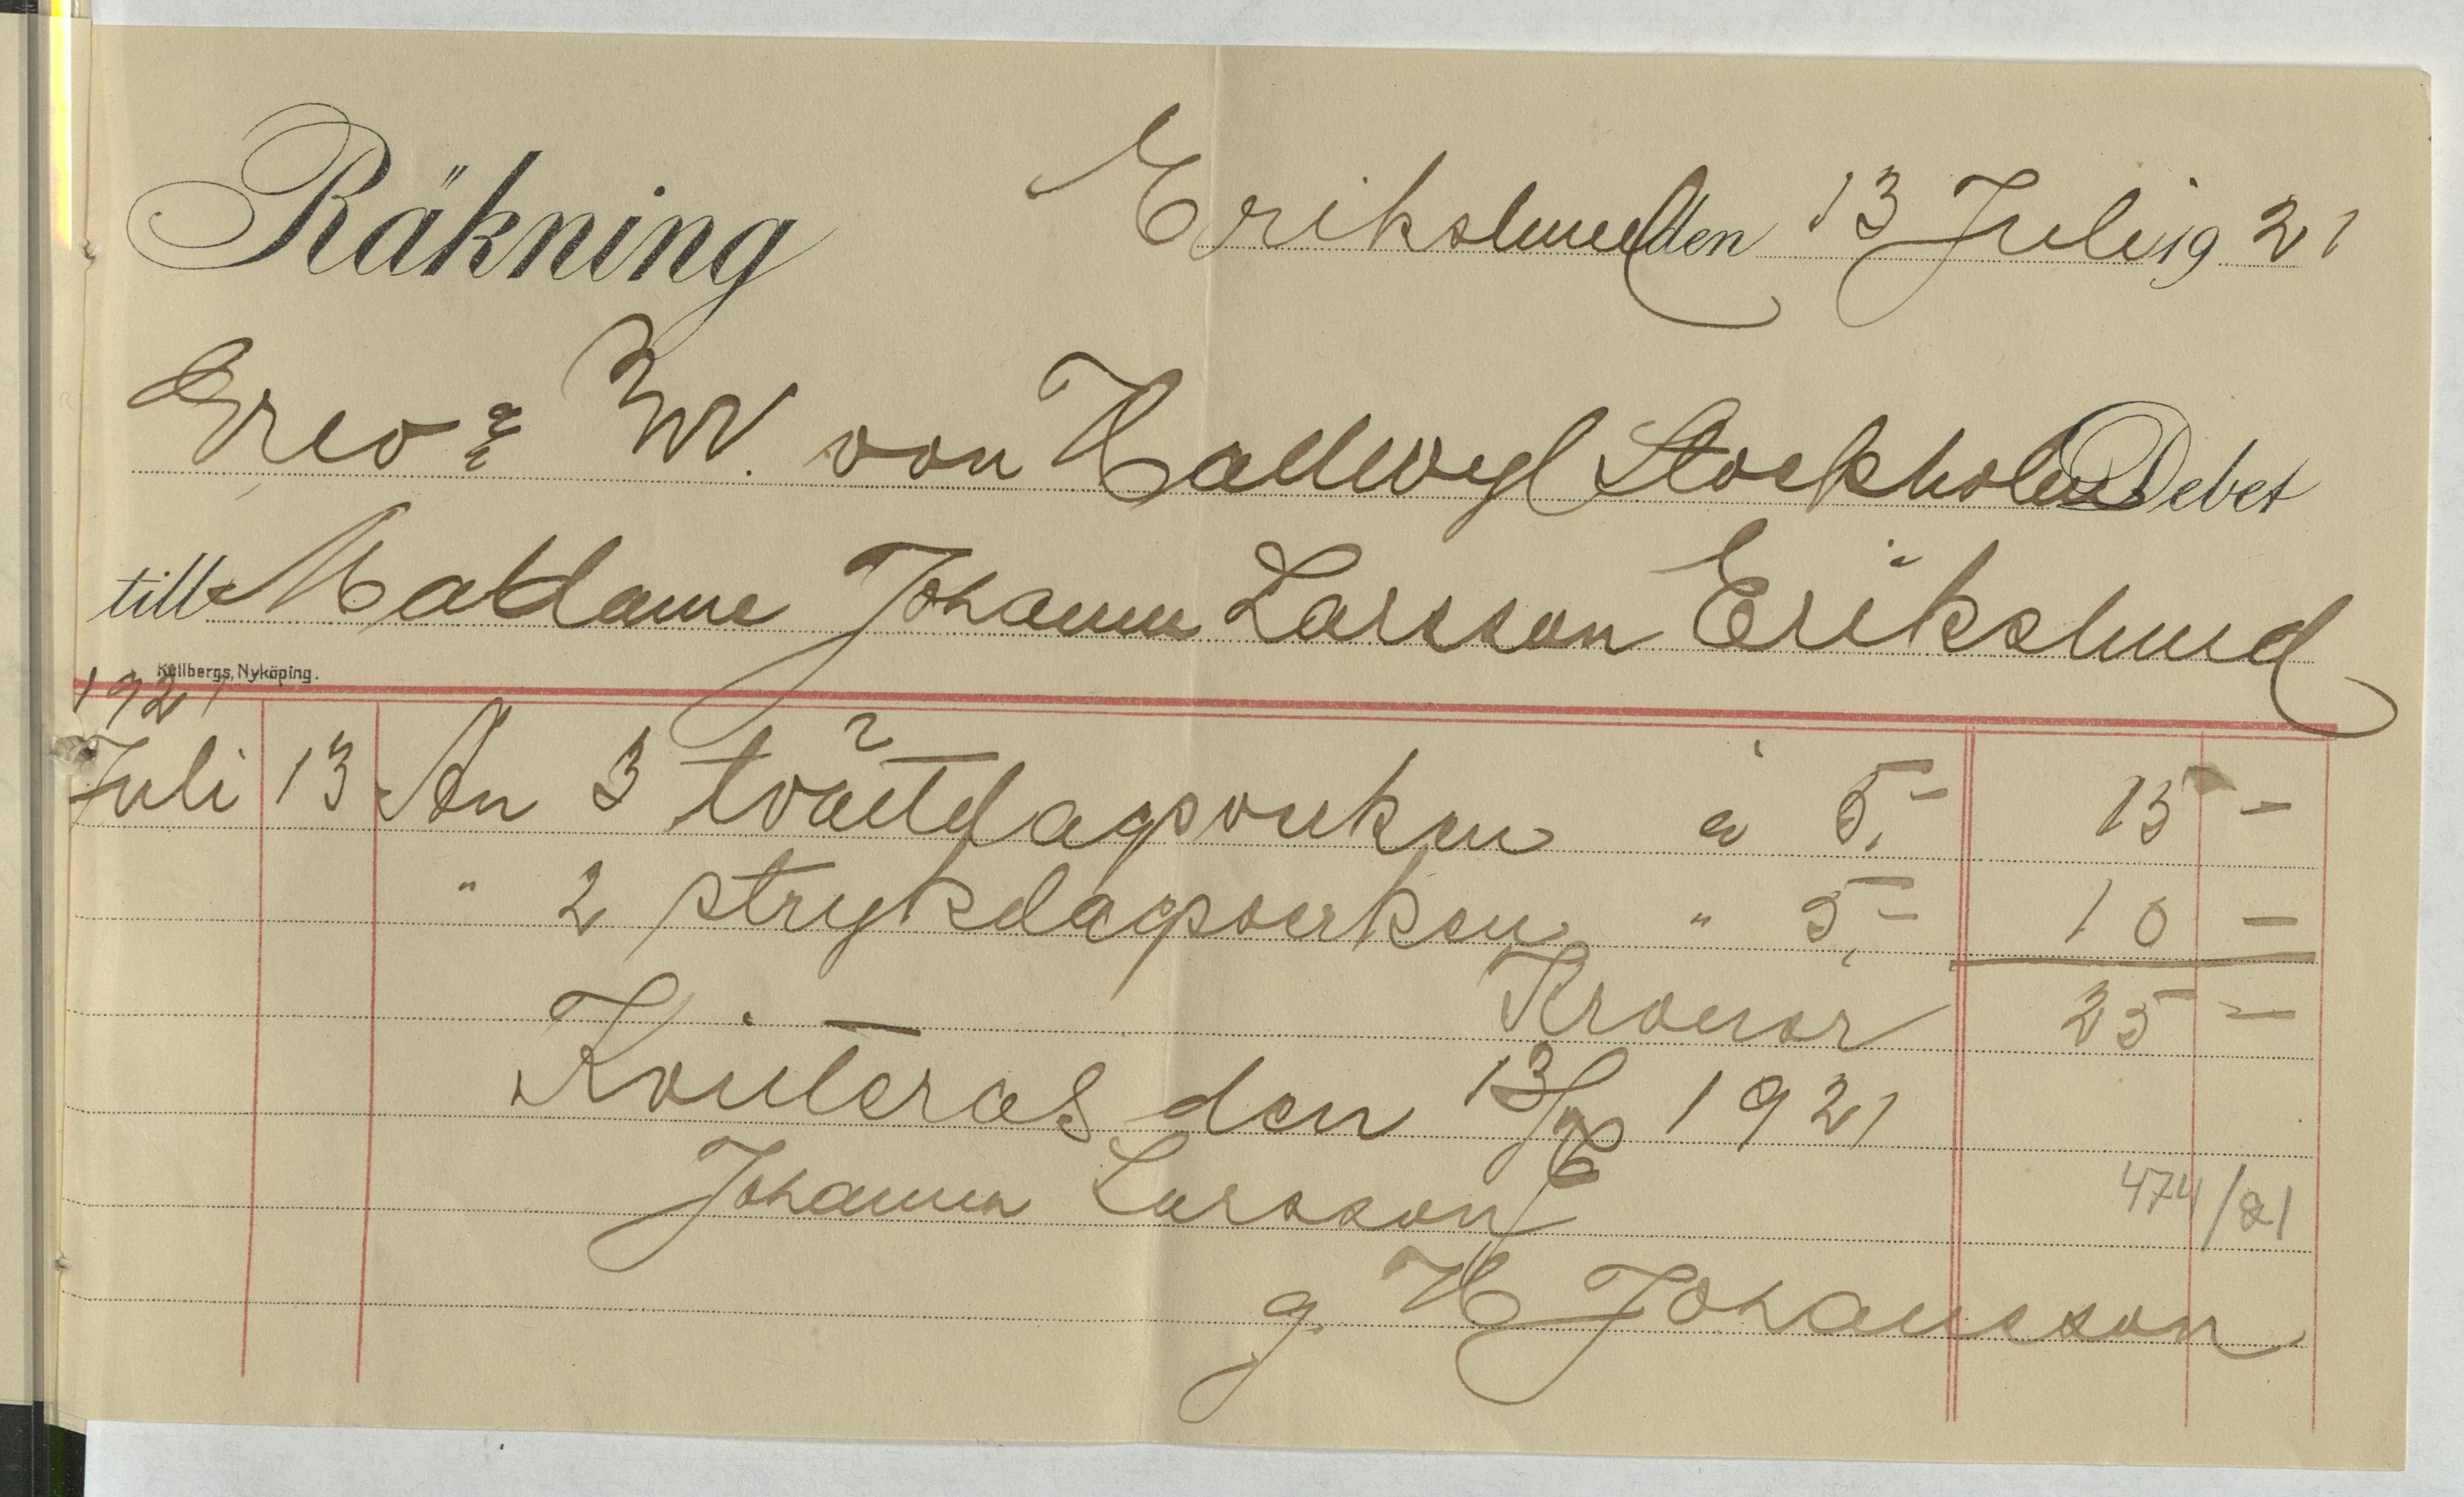 Räkning Erikslund den 13 Juli 19 21
Grev W. von Hallwyl Stockholm Debet
till Madame Johanna Larsson Erikslund
Källbergs, Nyköping.
1921
Juli 13 An 3 tvättdagsverken à 5.- 15 -
" 2 strykdagsverken " 5.- 10 -
Kronor 25 -
Kviteras den 13/7 1921
Johanna Larsson
474/21
g. H Johansson